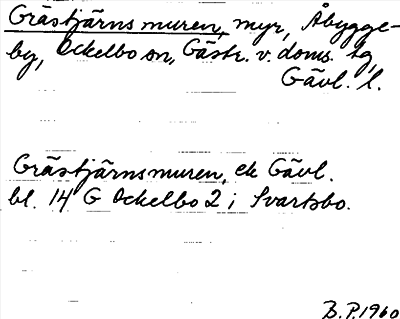 Grästjärnsmuren, myr, Åbygge-
by, Ockelbo sn, Gästr. v. doms. tg,
Gävl. l.
Grästjärnsmuren, ek Gävl.
bl. 14 G Ockelbo 2 i Svartsbo.
B.P. 1960